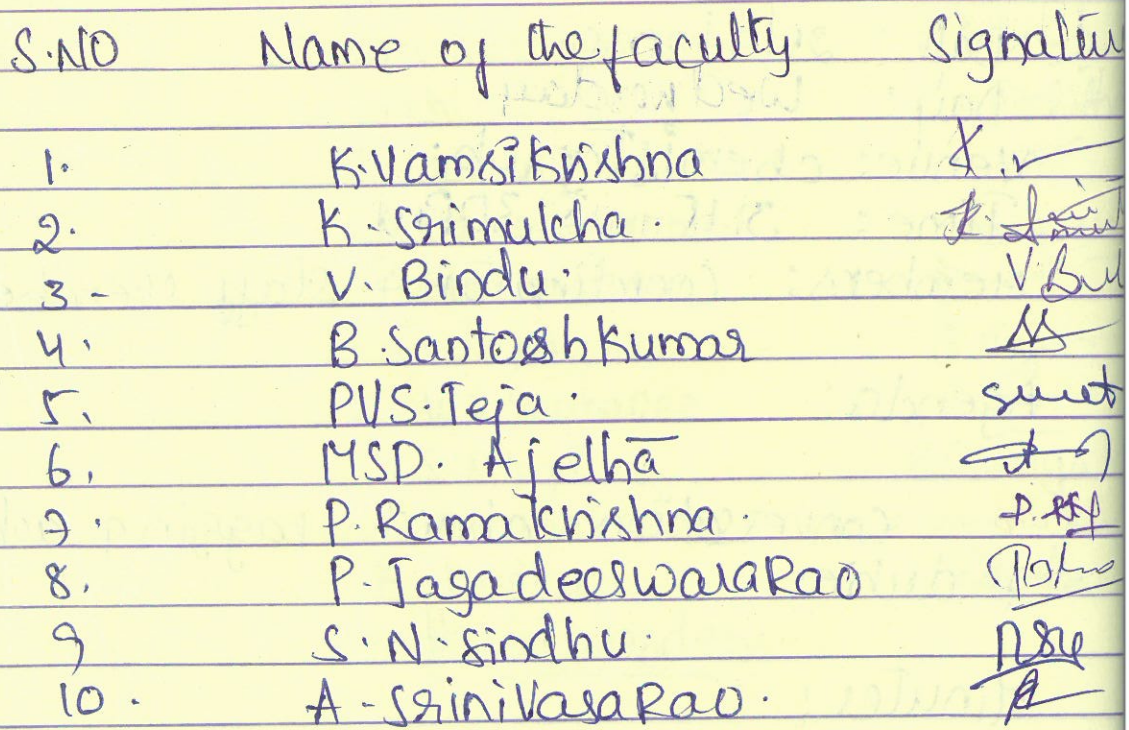 S.NO Name of the faculty Signatur
1. K.Vamsi Krishna K.
2. K. Srimulcha. K.
3- V. Bindu. V.B
4. B.Santoesh Kumar
5. PVS.Teja.
6. MSD. Ajelhā
7. P.Ramakrishna. P.RK
8. P.Jagadeeswara Rao
9 S.N.Sindhu.
10. A-Srinivasa Rao.